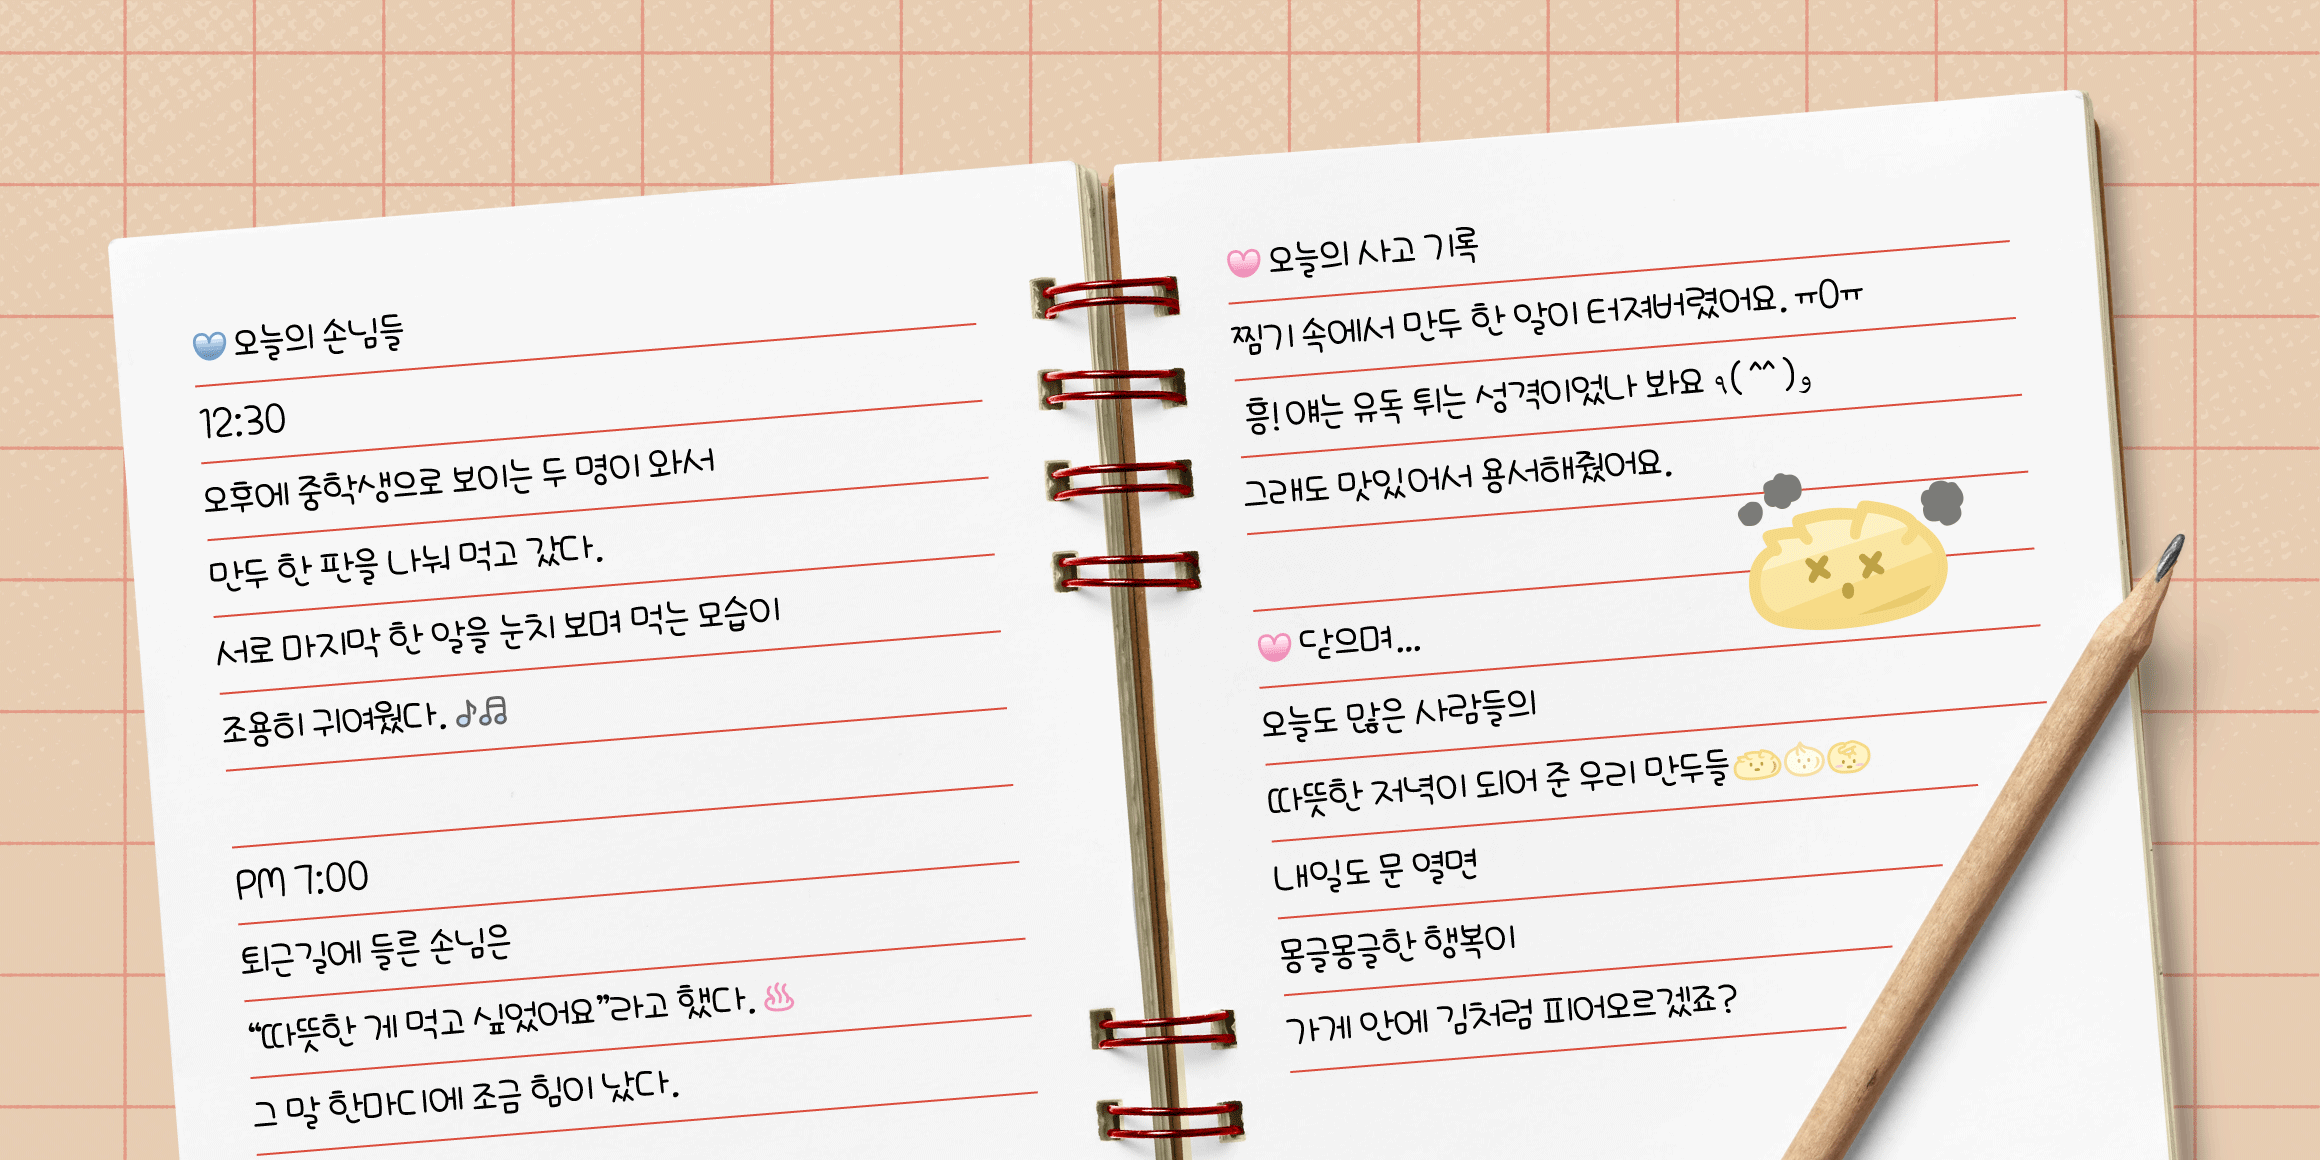 🩵 오늘의 손님들
12:30
오후에 중학생으로 보이는 두 명이 와서
만두 한 판을 나눠 먹고 갔다.
서로 마지막 한 알을 눈치 보며 먹는 모습이
조용히 귀여웠다. 🎵🎶
PM 7:00
퇴근길에 들른 손님은
“따뜻한 게 먹고 싶었어요”라고 했다. ♨
그 말 한마디에 조금 힘이 났다.
🩷 오늘의 사고 기록
찜기 속에서 만두 한 알이 터져버렸어요. ㅠ0ㅠ
흥! 얘는 유독 튀는 성격이었나 봐요 ٩( ^^ )و
그래도 맛있어서 용서해줬어요.
🩷 닫으며...
오늘도 많은 사람들의
따뜻한 저녁이 되어 준 우리 만두들
내일도 문 열면
몽글몽글한 행복이
가게 안에 김처럼 피어오르겠죠?